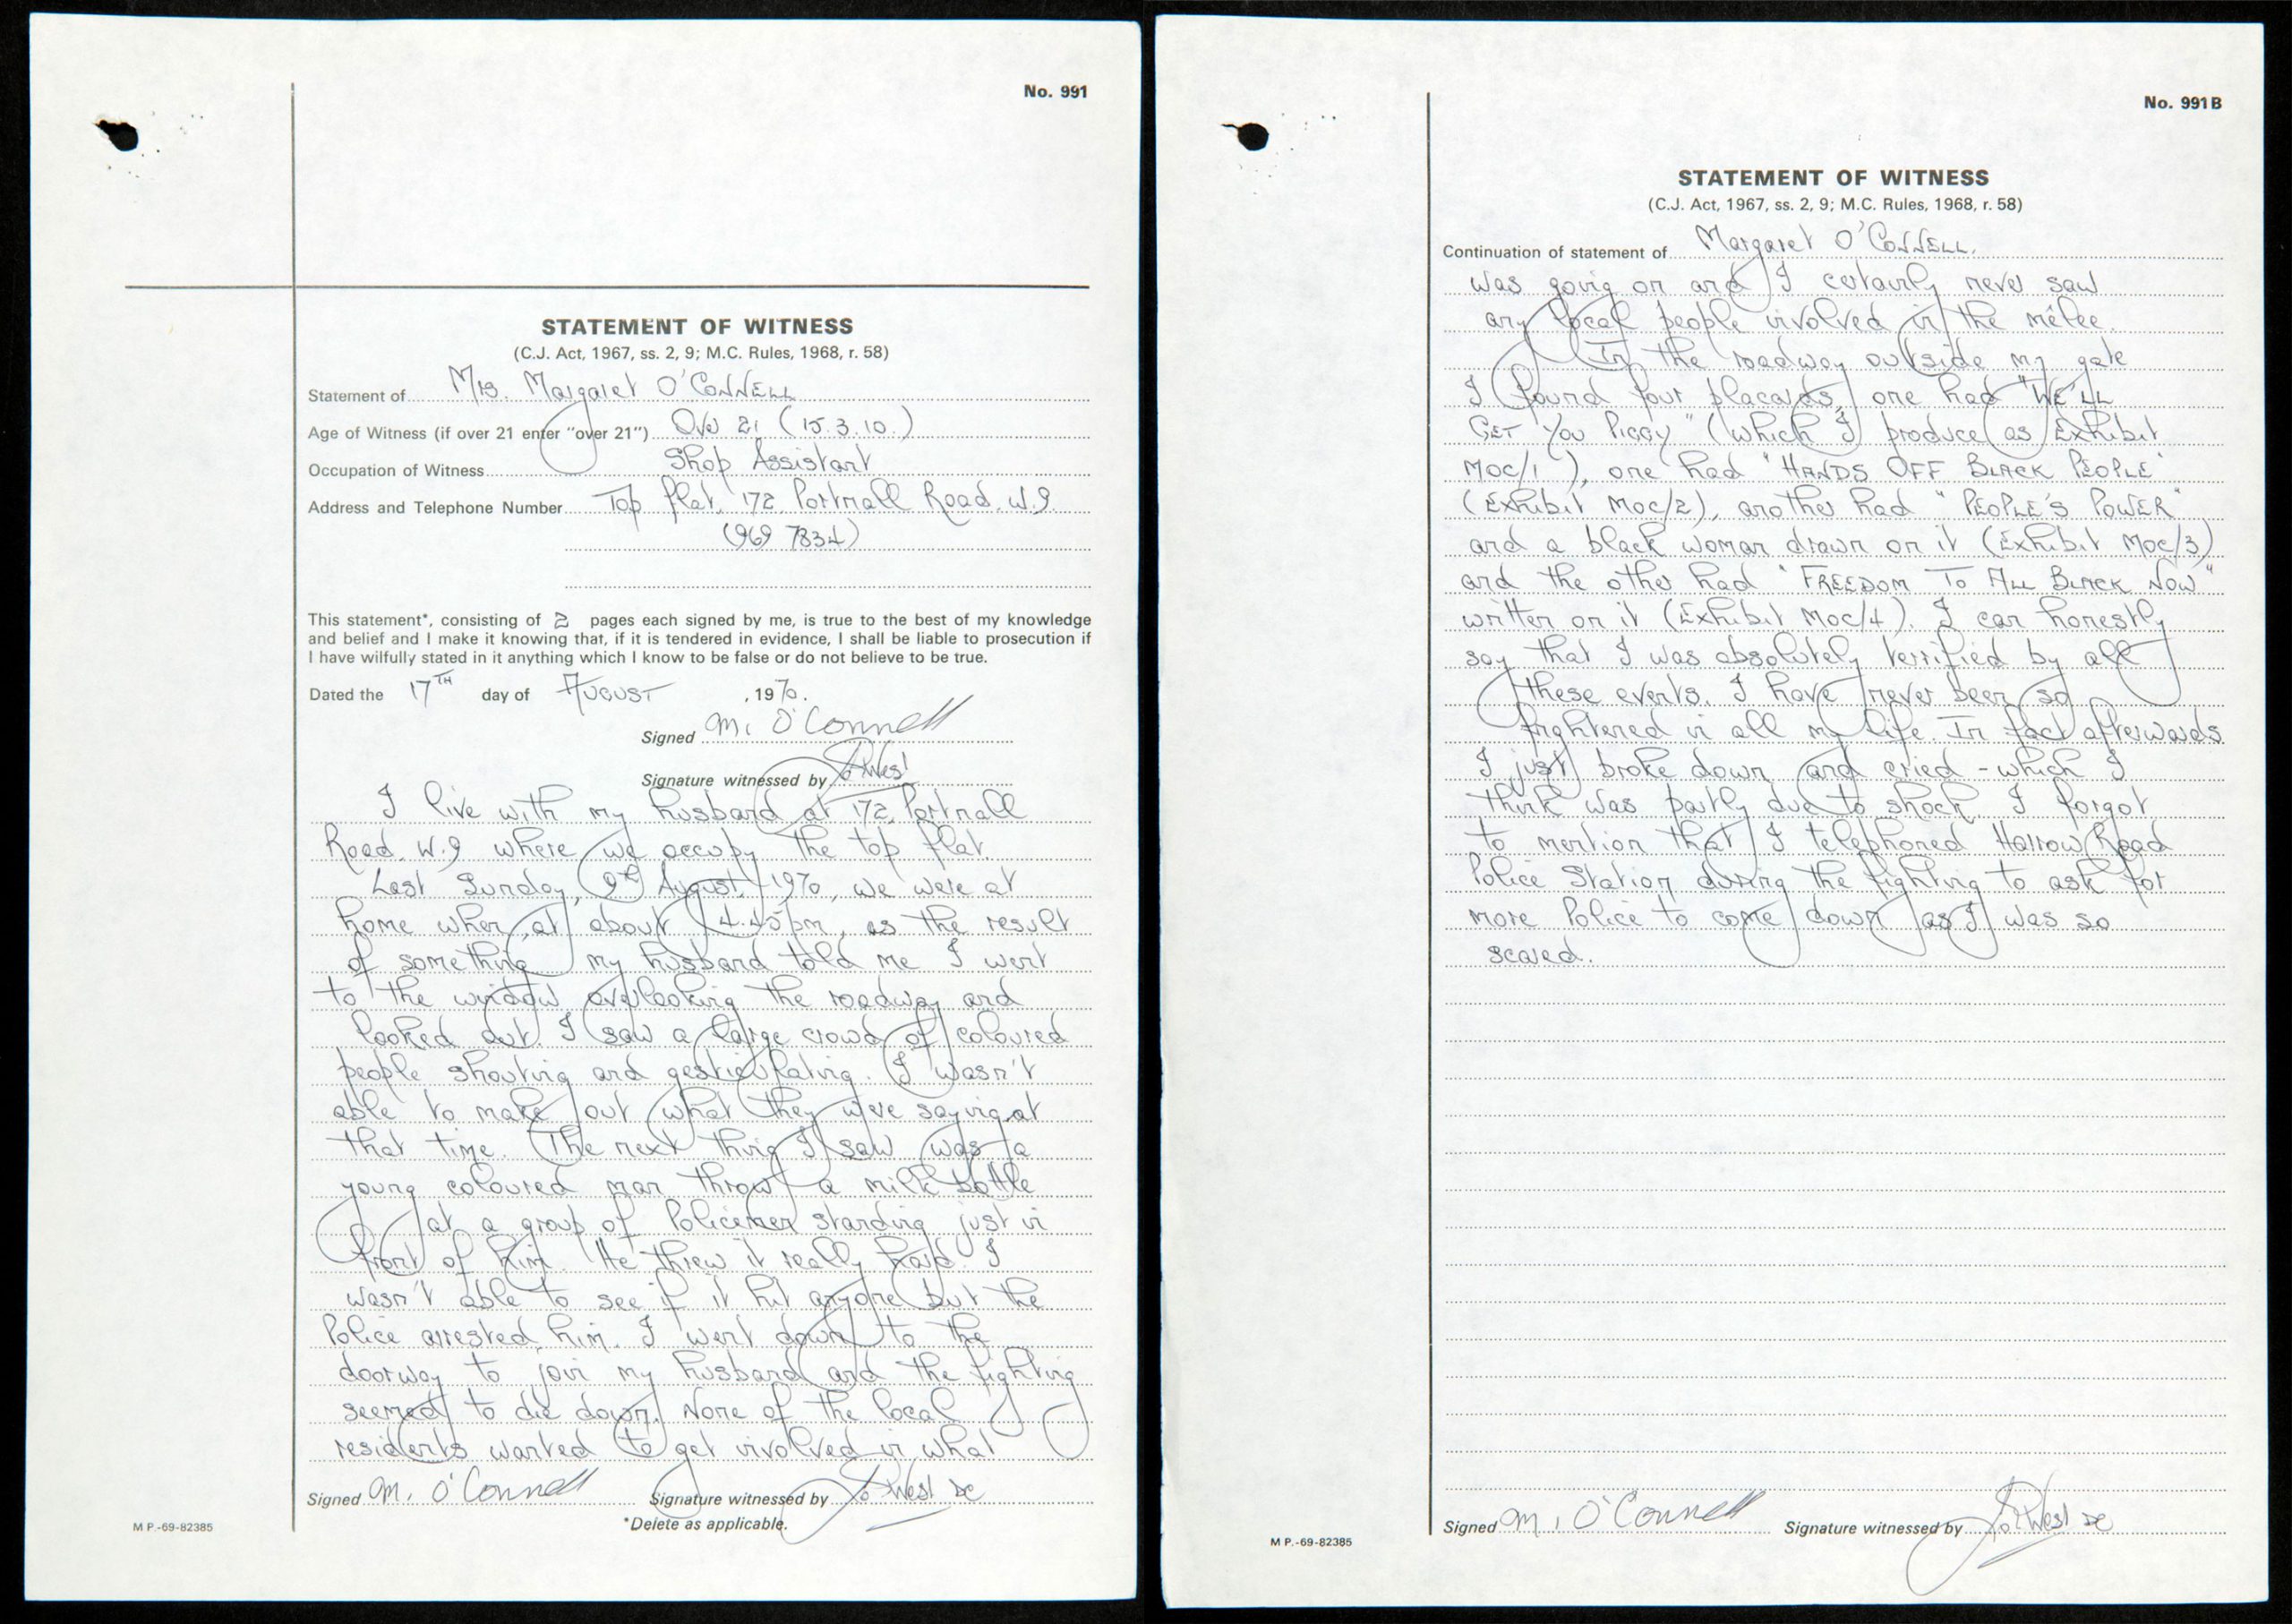 No. 991
STATEMENT OF WITNESS
(C.J. Act, 1967, ss. 2, 9; M.C. Rules, 1968, r. 58)
Statement of Mrs. Margaret O'CONNELL
Age of Witness (if over 21 enter "over 21") Over 21 (15.3.10.)
Occupation of Witness Shop Assistant
Address and Telephone Number Top flat, 172 Portnall Road, W.9.
(969 7834)
This statement*, consisting of 2 pages each signed by me, is true to the best of my knowledge
and belief and I make it knowing that, if it is tendered in evidence, I shall be liable to prosecution if
I have wilfully stated in it anything which I know to be false or do not believe to be true.
Dated the 17TH day of AUGUST , 1970.
Signed M. O'Connell
Signature witnessed by West
I live with my husband at 172, Portnall
Road, W.9 where we occupy the top flat.
Last Sunday, 9th August, 1970, we were at
home when, at about 4.45pm, as the result
of something my husband told me I went
to the window overlooking the roadway and
looked out. I saw a large crowd of coloured
people shouting and gesticulating. I wasn't
able to make out what they were saying at
that time. The next thing I saw was a
young coloured man throw a milk bottle
at a group of Policemen standing just in
front of him. He threw it really hard. I
wasn't able to see if it hit anyone but the
Police arrested him. I went down to the
doorway to join my husband and the fighting
seemed to die down. None of the local
residents wanted to get involved in what
Signed M. O'Connell Signature witnessed by West DC
*Delete as applicable.
M P.-69-82385
No. 991B
STATEMENT OF WITNESS
(C.J. Act, 1967, ss. 2, 9; M.C. Rules, 1968, r. 58)
Continuation of statement of Margaret O'CONNELL.
was going on and I certainly never saw
any local people involved in the mêlee.
In the roadway outside my gate
I found four placards, one had "WE'LL
GET YOU PIGGY" (which I produce as Exhibit
MOC/1), one had "HANDS OFF BLACK PEOPLE"
(Exhibit MOC/2), another had "PEOPLE'S POWER"
and a black woman drawn on it (Exhibit MOC/3)
and the other had "FREEDOM TO ALL BLACK NOW"
written on it (Exhibit MOC/4). I can honestly
say that I was absolutely terrified by all
these events. I have never been so
frightened in all my life. In fact afterwards
I just broke down and cried - which I
think was partly due to shock. I forgot
to mention that I telephoned Harrow Road
Police Station during the fighting to ask for
more Police to come down as I was so
scared.
Signed M. O'Connell Signature witnessed by West DC
M P.-69-82385